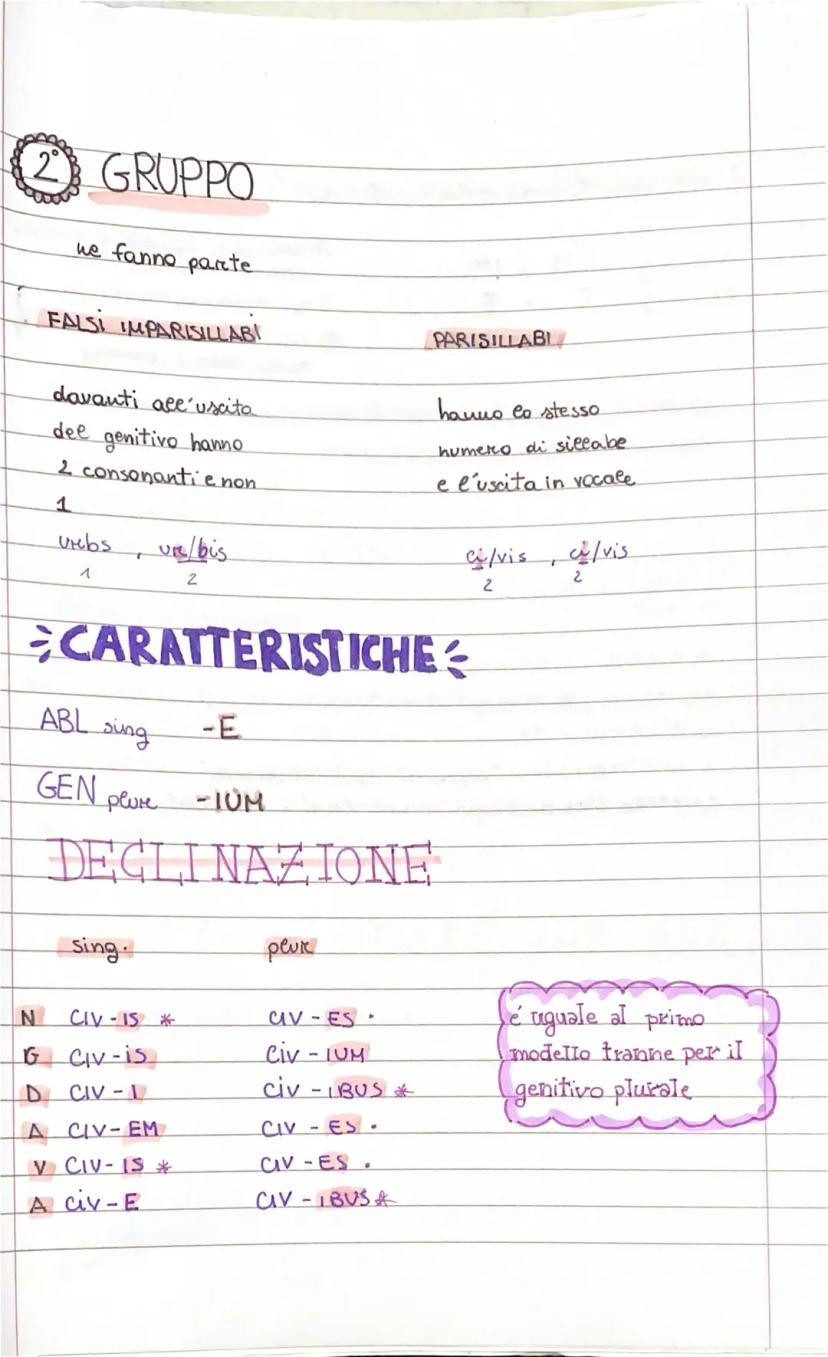 2° GRUPPO
ne fanno parte
FALSI IMPARISILLABI
davanti all'uscita
del genitivo hanno
2 consonanti e non
1
urbs , ur/bis
1 2
PARISILLABI
hanno lo stesso
numero di sillabe
e l'uscita in vocale
ci/vis , ci/vis
2 2
CARATTERISTICHE
ABL sing -E
GEN plur -IUM
DECLINAZIONE
sing. plur
N CIV-IS * CIV-ES .
G CIV-IS CIV-IUM
D CIV-I CIV-IBUS *
A CIV-EM CIV-ES .
V CIV-IS * CIV-ES .
A CIV-E CIV-IBUS *
é uguale al primo
modello tranne per il
genitivo plurale